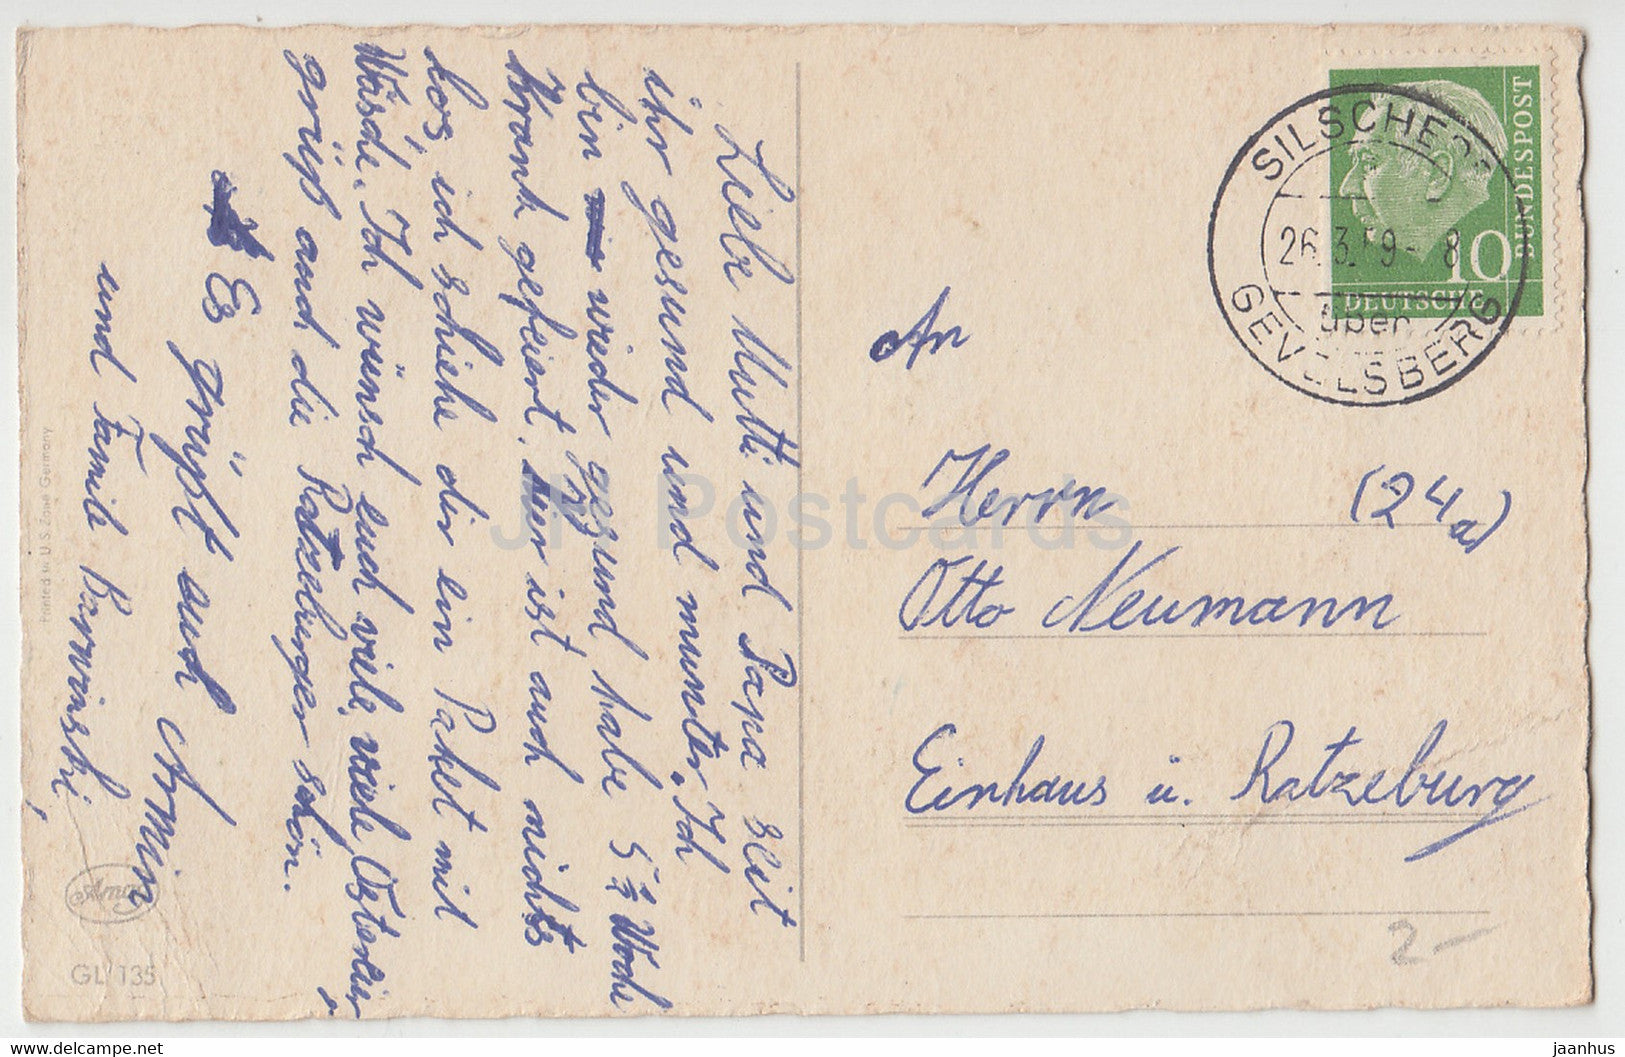 Liebe Mutti und Papa seit
ihr gesund und munter. Ich
bin wieder gesund habe 5 1/2 Woche
Krank gefeiert. hier ist auch nichts
los ich schicke dir ein Paket mit
Wäsche. Ich wünsch euch viele, viele Ostereier
grüß and die Ratzeburger schön.
Es grüßt euch Armin
und Familie Barwinski
An
Herrn (24a)
Otto Neumann
Einhaus ü. Ratzeburg
2-
SILSCHEDE
26.3.59-8
über
GEVELSBERG
10
DEUTSCHE
BUNDESPOST
Printed in U.S. Zone Germany
Amag
GL 135
JN Postcards
www.delcampe.net
jaanhus